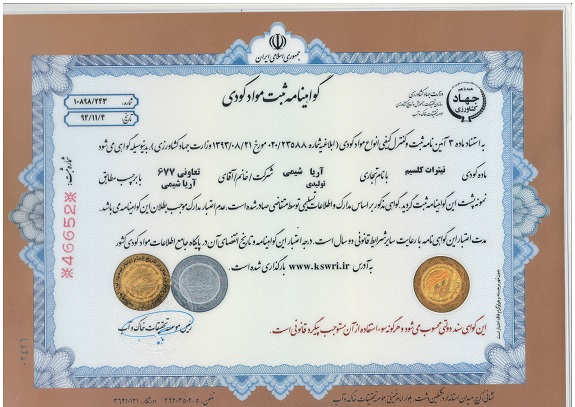 جمهوری اسلامی ایران
گواهینامه ثبت مواد کودی
شماره: ۱۰۸۹۸/۲۴۳
تاریخ: ۹۴/۱۱/۴
وزارت جهاد کشاورزی
جهاد کشاورزی
به استناد ماده ۳ آئین نامه ثبت و کنترل کیفی انواع مواد کودی (ابلاغیه شماره ۰۲۰/۲۳۵۸۸ مورخ ۱۳۹۳/۰۸/۲۱ وزارت جهاد کشاورزی)، بدینوسیله گواهی می شود
ماده کودی نیترات کلسیم با نام تجاری آریا شیمی تولیدی شرکت/خانم/آقای تعاونی ۶۷۷ آریا شیمی با برچسب مطابق
نمونه پشت این گواهینامه ثبت گردید. گواهی مذکور بر اساس مدارک و اطلاعات تسلیمی توسط متقاضی صادر شده است، عدم اعتبار مدارک موجب بطلان این گواهینامه می باشد.
مدت اعتبار این گواهی نامه با رعایت سایر شرایط قانونی دو سال است. درجه اعتبار این گواهینامه و تاریخ انقضای آن در پایگاه جامع اطلاعات مواد کودی کشور
به آدرس www.kswri.ir بارگذاری شده است.
رئیس موسسه تحقیقات خاک و آب
این گواهی سند دولتی محسوب می شود و هرگونه سوء استفاده از آن مستوجب پیگرد قانونی است.
شماره ثبت:
※46652※
نشانی: کرج، میدان استاندارد، مشکین دشت، بلوار امام خمینی، موسسه تحقیقات خاک و آب